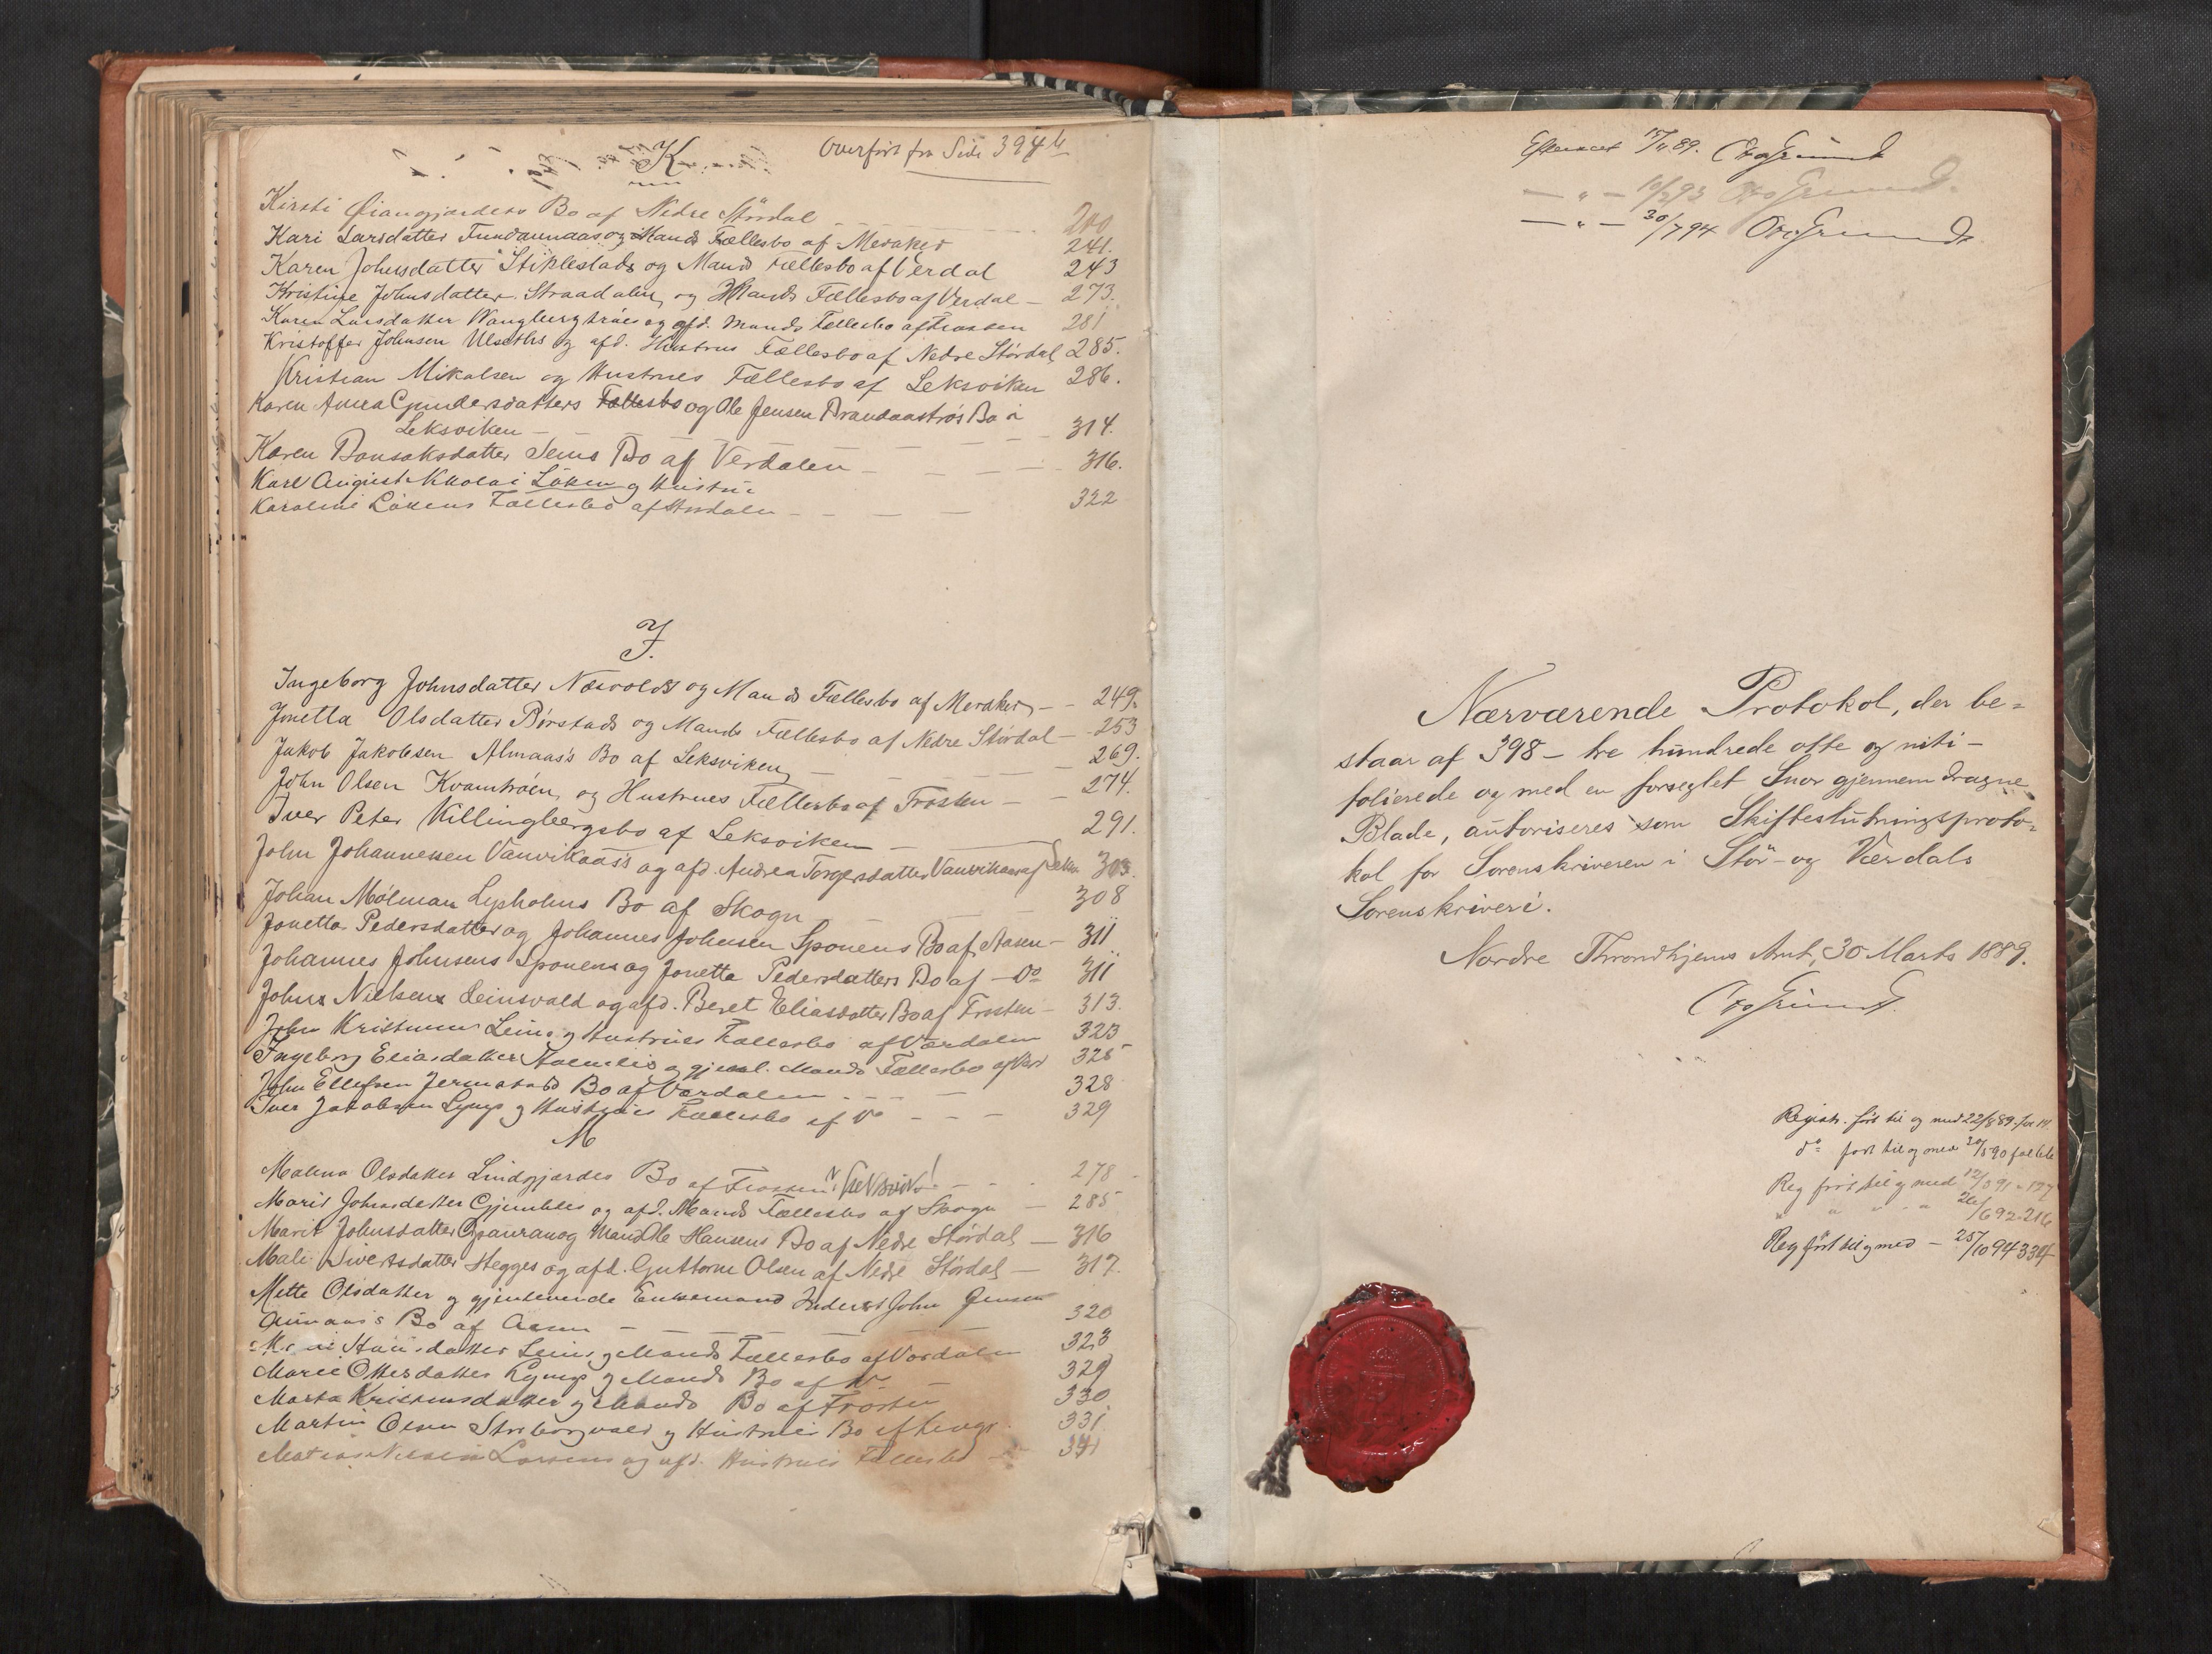 K
Overført fra Side 394 b
Kirsti Øiangjardets Bo af Nedre Stördal 200
Kari Larsdatter Fundaunaas og Mands Fællesbo af Meraker 241.
Karen Johnsdatter Stiklestads og Mands Fællesbo af Verdal 243
Kristine Johnsdatter Straadalen og Mands Fællesbo af Verdal 273.
Karen Larsdatter Wangbergtrøes og afd. Mands Fællesbo af Frosten 281
Kristoffer Johnsen Ulseths og afd. Hustrus Fællesbo af Nedre Stördal 285.
Kristian Mikalsen og Hustrues Fællesbo af Leksviken 286.
Karen Anna Gundersdatters Fællesbo og Ole Jensen Brandaastrøs Bo i
Leksviken 314.
Karen Bonsaksdatter Sems Bo af Verdalen 316.
Karl August Nikolai Löken og Hustru
Karoline Lökens Fællesbo af Stördalen 322
J.
Ingeborg Johnsdatter Næsvolds og Mands Fællesbo af Meraker 249.
Jonetta Olsdatter Børstads og Mands Fællesbo af Nedre Stördal 253
Jakob Jakobsen Almaas's Bo af Leksviken 269.
John Olsen Kvamtrøen og Hustrues Fællesbo af Frosten 274.
Iver Peter Killingbergsbo af Leksviken 291.
John Johannessen Vanvikaas's og afd. Andrea Torgersdatter Vanvikaas af Leksv. 303.
Johan Mølman Lysholms Bo af Skogn 308
Jonetta Pedersdatter og Johannes Johnsen Sponens Bo af Aasen 311
Johannes Johnsens Sponens og Jonetta Pedersdatters Bo af Do 311
John Nielsens Leinsvald og afd. Beret Eliasdatter Bo af Frosten 313.
John Kristensen Leins og Hustrues Fællesbo af Værdalen 323
Ingeborg Eliasdatter og gjenl. Mands Fællesbo af Verd 325
John Ellefsen Jermstad Bo af Værdalen 328
Iver Jakobsen Lyngs og Hustrues Fællesbo af Do 329
M
Malena Olsdatter Lindgjærdes Bo af Frosten (Leksvik!) 278
Marit Johnsdatter og afd. Mands Fællesbo af Skogn 285
Marit Johnsdatter og Mand Ole Hansens Bo af Nedre Stördal 316
Mali Sivertsdatter Hegges og afd. Guttorm Olsen af Nedre Stördal 317.
Mette Olsdatter og gjenlevende Enkemand John Jensen
Aunaas's Bo af Aasen 320
Hansdatter Leins og Mands Fællesbo af Værdalen 323
Marie Ottersdatter Lyngs og Mands Bo af Do 329
Marta Kristensdatter og Mands Bo af Frosten 330
Martin Olsen og Hustrues Bo af 331
Larsens og afd. Hustrues Fællesbo 341
Efterseet 15/11 89. OvaGrundt
— " — 10/2 93
— " — 30/7 94
Nærværende Protokol, der be=
staar af 398 - tre hundrede otte og niti -
folierede og med en forseglet Snor gjennemdragne
Blade, autoriseres som Skifteslutningsproto=
kol for Sorenskriveren i Stör- og Værdals
Sorenskriveri.
Nordre Throndhjems Amt, 30 Marts 1889.
Registr. ført til og med 22/8 89. fol 14.
do ført til og med 30/5 90 fol
Reg ført til og med 12/3 91 - 127
" " " " 26/6 92. 216
Reg ført til og med - 25/10 94 334